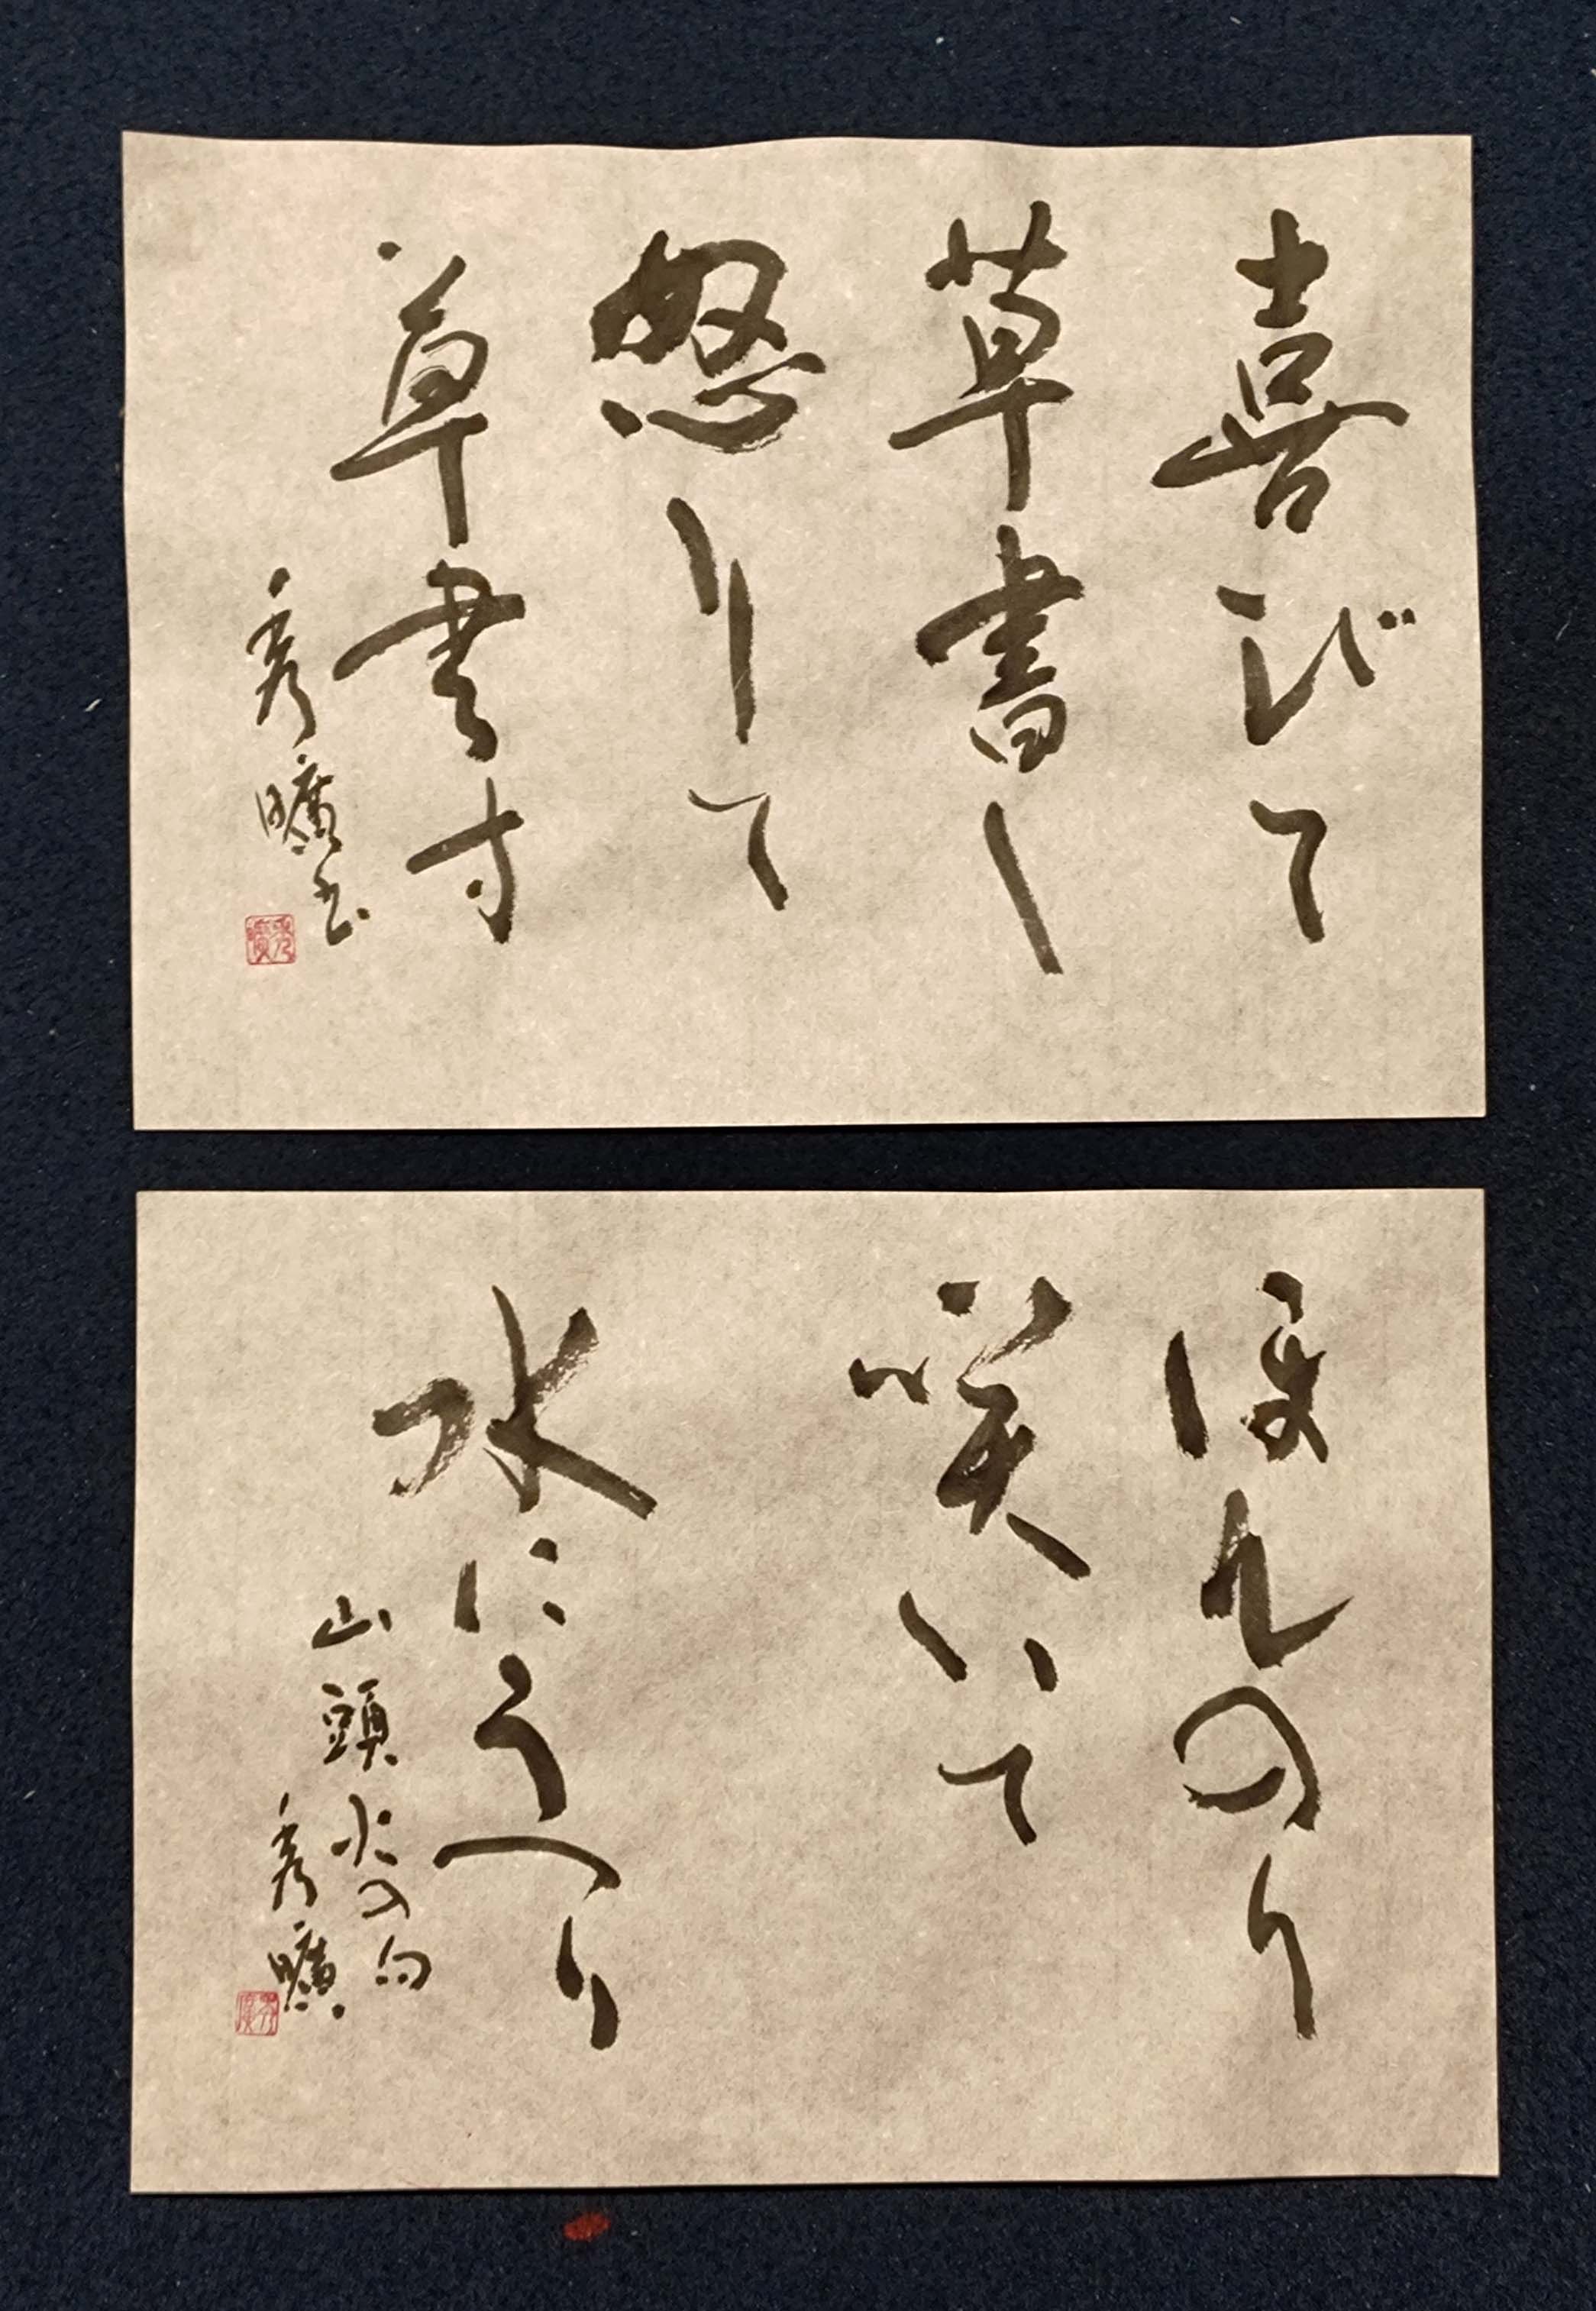 喜びて
草書し
怒りて
草書す
秀曠書
ほんのり
咲いて
水にうつり
山頭火の句
秀曠